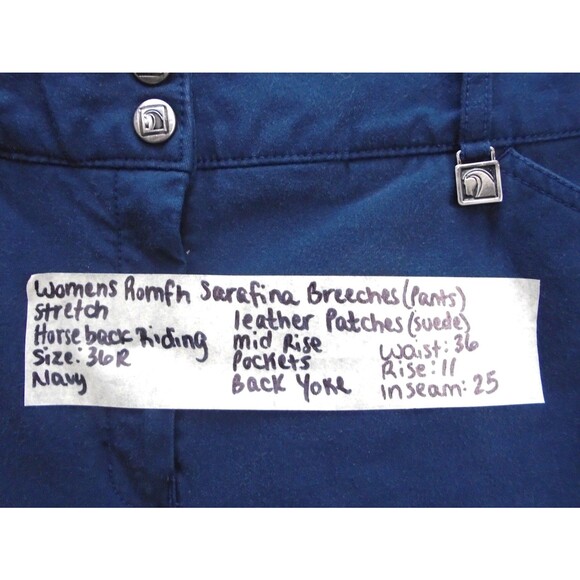 Womens Romfh Sarafina Breeches (Pants)
Stretch
Horseback Riding
Size: 36R
Navy
leather Patches (suede)
Mid Rise
Pockets
Back Yoke
Waist: 36
Rise: 11
inseam: 25